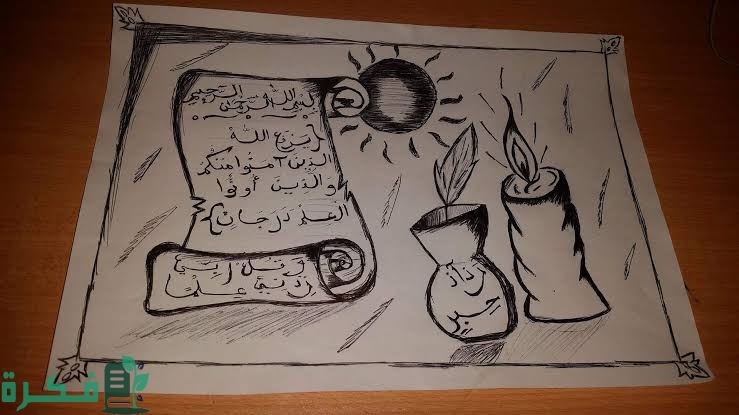 بسم الله الرحمن الرحيم
{يرفع الله
الذين آمنوا منكم
والذين أوتوا
العلم درجات}
وقل ربي
زدني علمًا
رذاذ
حبر
فكرة